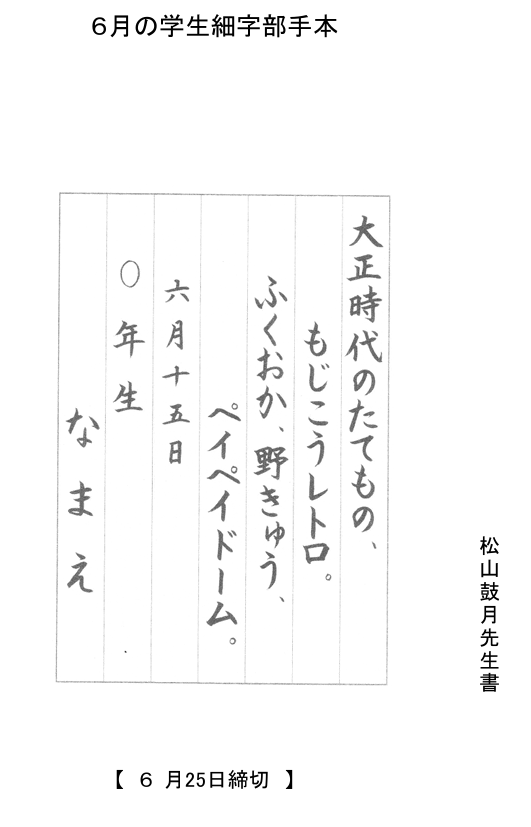 ６月の学生細字部手本
大正時代のたてもの、
もじこうレトロ。
ふくおか、野きゅう、
ペイペイドーム。
六月十五日
〇年生
なまえ
松山鼓月先生書
【 ６ 月25日締切 】